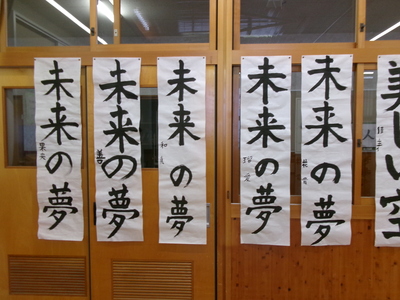 未来の夢
未来の夢
未来の夢
未来の夢
未来の夢
美しい空